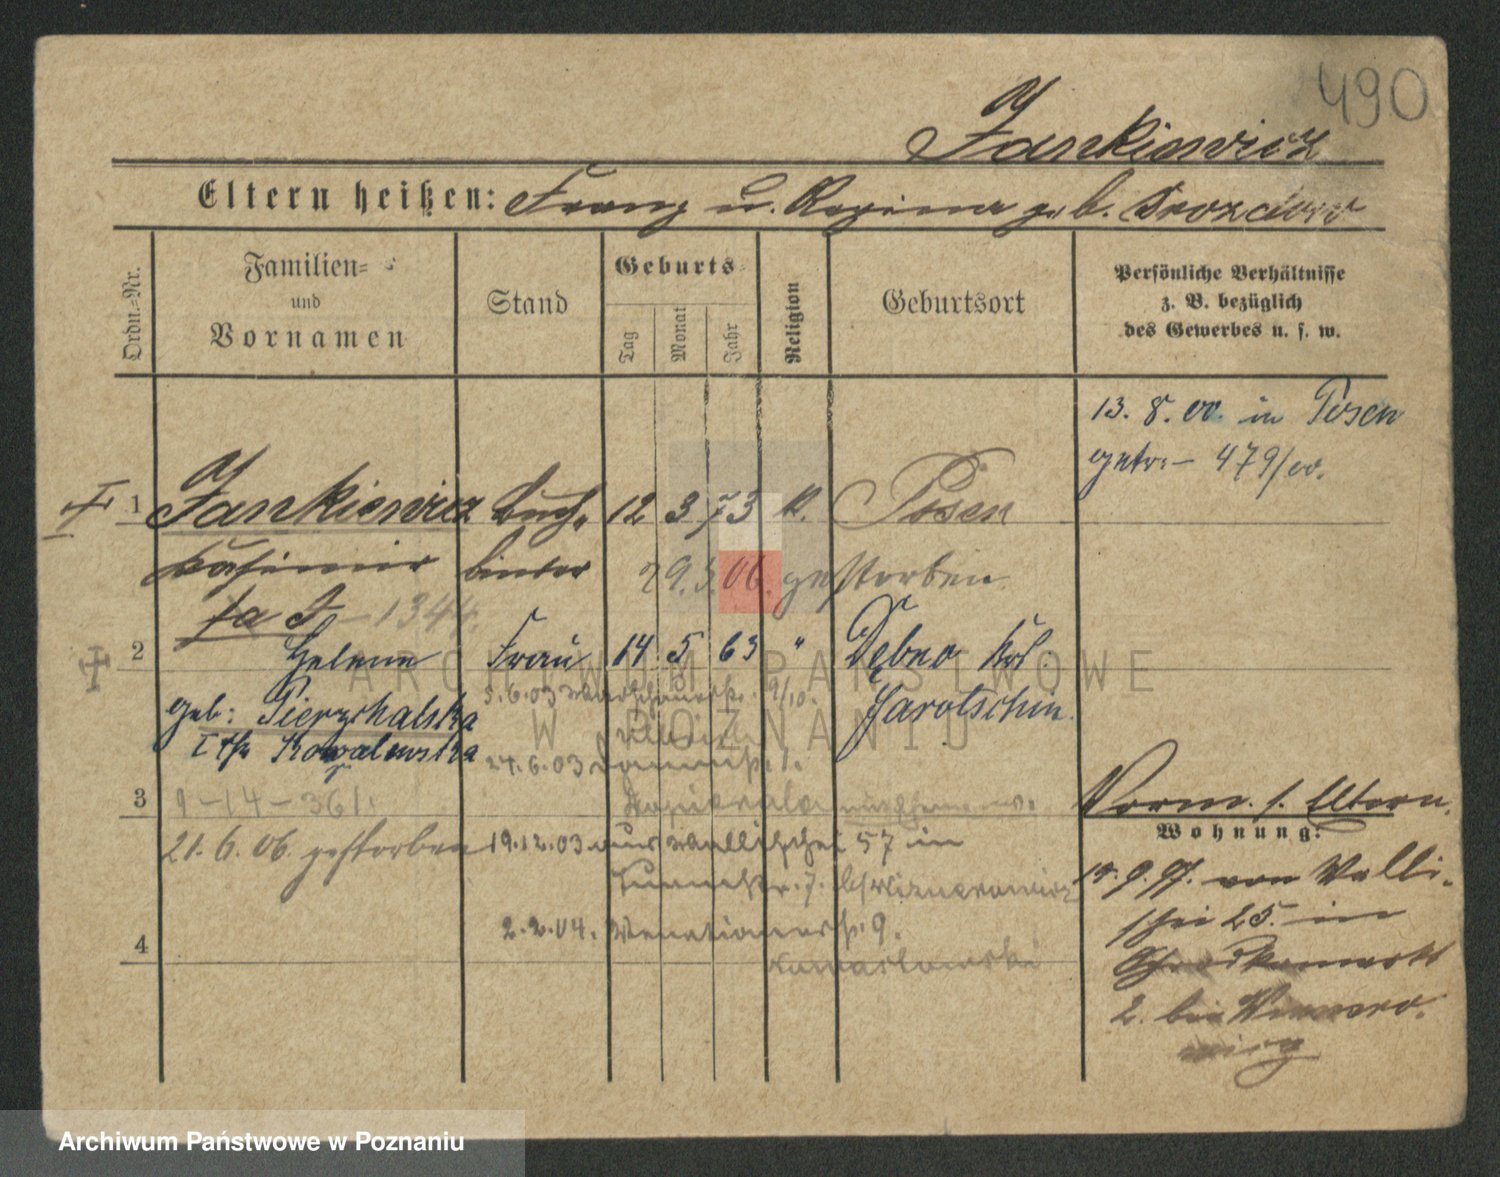 490
Jankiewicz
Eltern heißen: Franz u. Regina geb. Drozdow
Ordn.-Nr.
Familien-
und
Vornamen
Stand
Geburts-
Tag
Monat
Jahr
Religion
Geburtsort
Persönliche Verhältnisse
z. B. bezüglich
des Gewerbes u. s. w.
13. 8. 00. in Posen
getr. – 479/00.
1 Jankiewicz Buch- 12 3 73 k. Posen
Kasimir binder 29. 3. 06. gestorben
1344.
2 Helene Frau 14 5 63 " Dębno Krs.
Jarotschin.
geb: Pierzchalska
I Kowalewska
5.6.03 9/10.
24.6.03
3 9-14-361.
21. 6. 06. gestorben
19.12.03 aus Wallischei 57 in
Turmstr. 7. b/
2.2.04. Venetianerstr. 9.
4
Vorm. s. Eltern.
Wohnung:
9. 97. von Walli-
schei 25. in
2. bei
ARCHIWUM PAŃSTWOWE
W POZNANIU
Archiwum Państwowe w Poznaniu